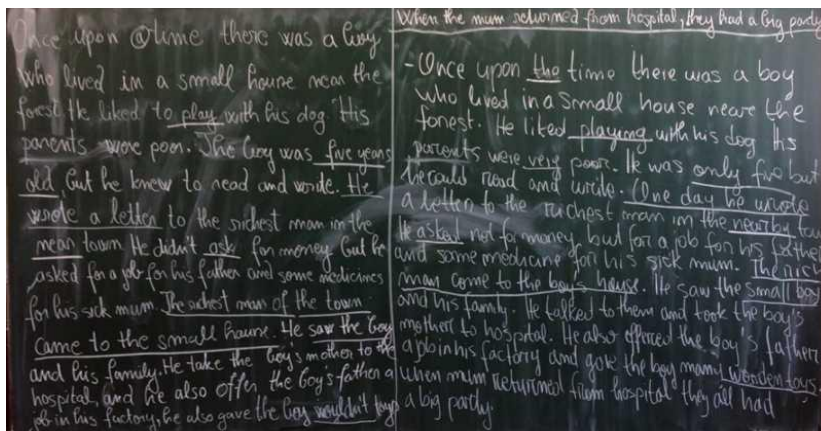 Once upon a time there was a boy
who lived in a small house near the
forest. He liked to play with his dog. His
parents were poor. The boy was five years
old, but he knew to read and wrote. He
wrote a letter to the richest man in the
near town. He didn't ask for money but he
asked for a job for his father and some medicines
for his sick mum. The richest man of the town
came to the small house. He saw the boy
and his family. He take the boy's mother to the
hospital, and he also offer the boy's father a
job in his factory, he also gave the boy wouldn't toys
When the mum returned from hospital, they had a big party
- Once upon the time there was a boy
who lived in a small house neare the
forest. He liked playing with his dog His
parents were very poor. He was only five but
he could read and write. One day he wrote
a letter to the richest man in the nearby town
He asked not for money, but for a job for his father
and some medicine for his sick mum. The rich
man come to the boy's house. He saw the small boy
and his family. He talked to them and took the boy's
mother to hospital. He also offered the boy's father
a job in his factory and gave the boy many wooden toys.
When mum returned from hospital they all had
a big party.